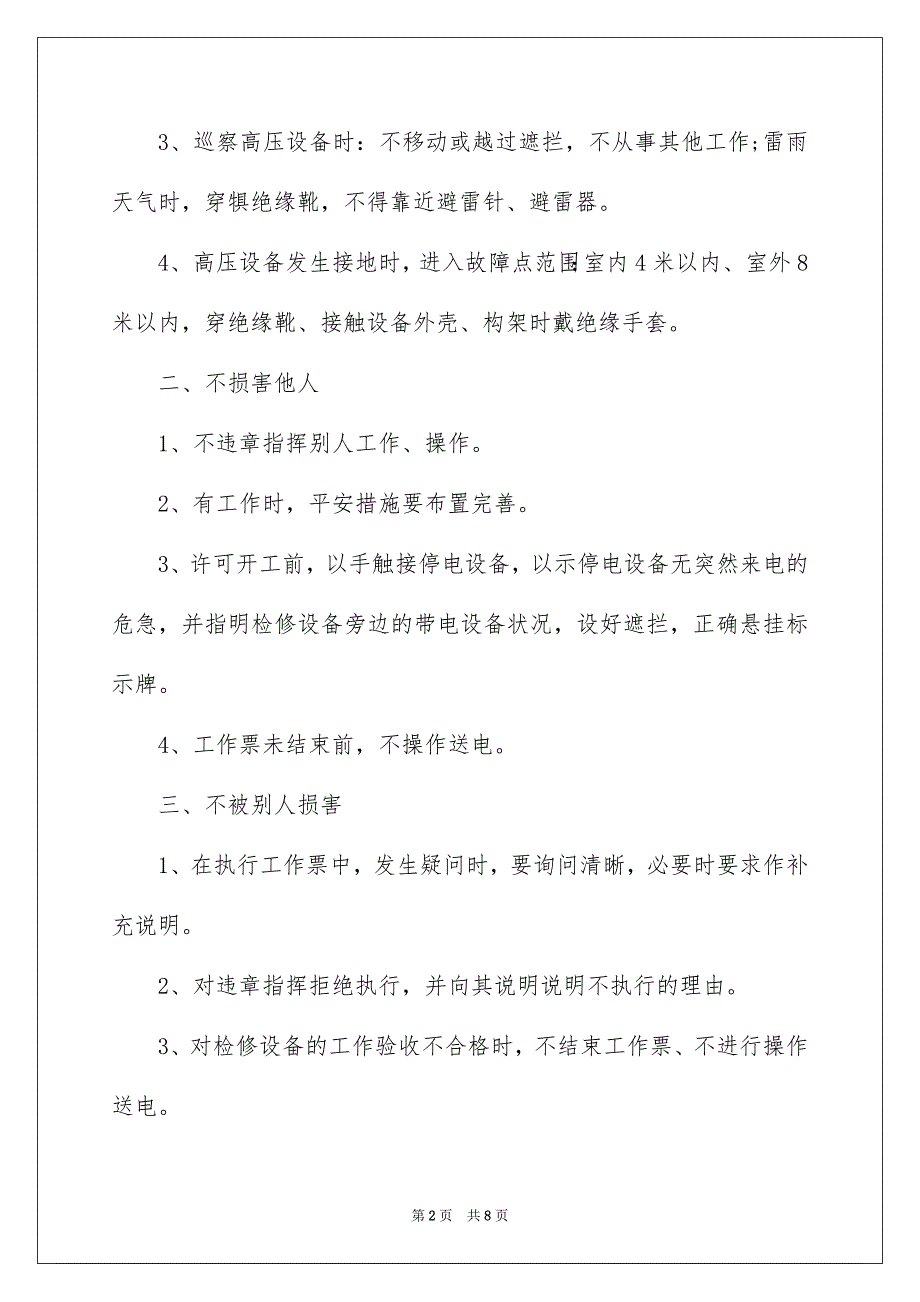 3、巡察高压设备时：不移动或越过遮拦，不从事其他工作;雷雨
天气时，穿惧绝缘靴，不得靠近避雷针、避雷器。
4、高压设备发生接地时，进入故障点范围：室内 4 米以内、室外 8
米以内，穿绝缘靴、接触设备外壳、构架时戴绝缘手套。
二、不损害他人
1、不违章指挥别人工作、操作。
2、有工作时，平安措施要布置完善。
3、许可开工前，以手触接停电设备，以示停电设备无突然来电的
危急，并指明检修设备旁边的带电设备状况，设好遮拦，正确悬挂标
示牌。
4、工作票未结束前，不操作送电。
三、不被别人损害
1、在执行工作票中，发生疑问时，要询问清晰，必要时要求作补
充说明。
2、对违章指挥拒绝执行，并向其说明说明不执行的理由。
3、对检修设备的工作验收不合格时，不结束工作票、不进行操作
送电。
第 2 页 共 8 页